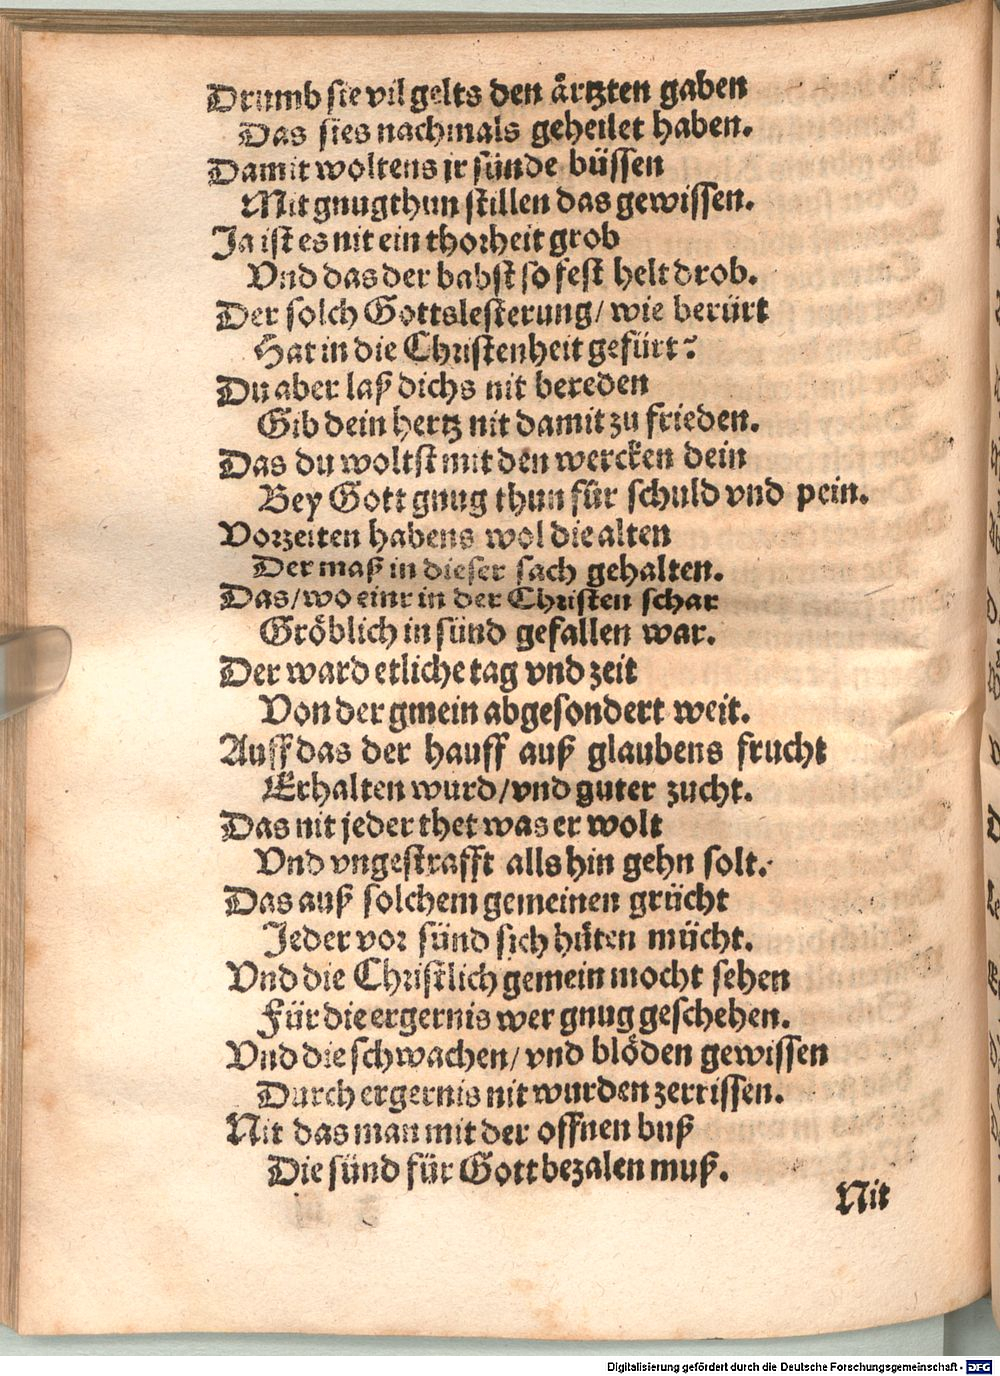 Drumb sie vil gelts den årtzten gaben
Das sies nachmals geheilet haben.
Damit woltens ir sünde büssen
Mit gnugthun stillen das gewissen.
Ja ist es nit ein thorheit grob
Vnd das der babst so fest helt drob.
Der solch Gottslesterung/ wie berürt
Hat in die Christenheit gefürt?
Du aber laß dichs nit bereden
Gib dein hertz nit damit zu frieden.
Das du woltst mit den wercken dein
Bey Gott gnug thun für schuld vnd pein.
Vorzeiten habens wol die alten
Der maß in dieser sach gehalten.
Das/ wo einr in der Christen schar
Gröblich in sünd gefallen war.
Der ward etliche tag vnd zeit
Von der gmein abgesondert weit.
Auff das der hauff auß glaubens frucht
Erhalten wurd/ vnd guter zucht.
Das nit jeder thet was er wolt
Vnd vngestrafft alls hin gehn solt.
Das auß solchem gemeinen grücht
Jeder vor sünd sich hüten mücht.
Vnd die Christlich gemein mocht sehen
Für die ergernis wer gnug geschehen.
Vnd die schwachen/ vnd blöden gewissen
Durch ergernis nit wurden zerrissen.
Nit das man mit der offnen buß
Die sünd für Gott bezalen muß.
Nit
Digitalisierung gefördert durch die Deutsche Forschungsgemeinschaft - DFG